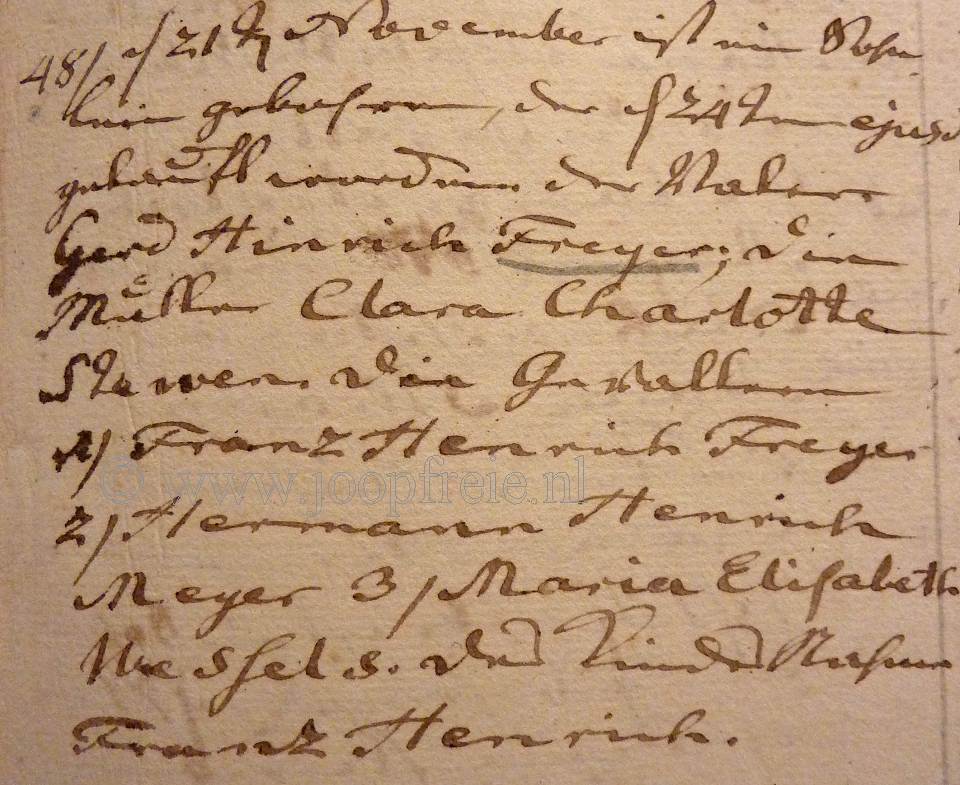 48/ d 21t November ist ein Söhn
lein gebohren, der d 24ten ejusd
getaufft worden. der Vater
Gerd Hinrich Freyer; die
Mutter Clara Charlotte
Stuwen. die Gevattern
1/ Franz Henrich Freyer
© www.joopfreie.nl
2/ Hermann Henrich
Meyer 3/ Maria Elisabeth
Wessels. des Kindes Nahme
Franz Henrich.